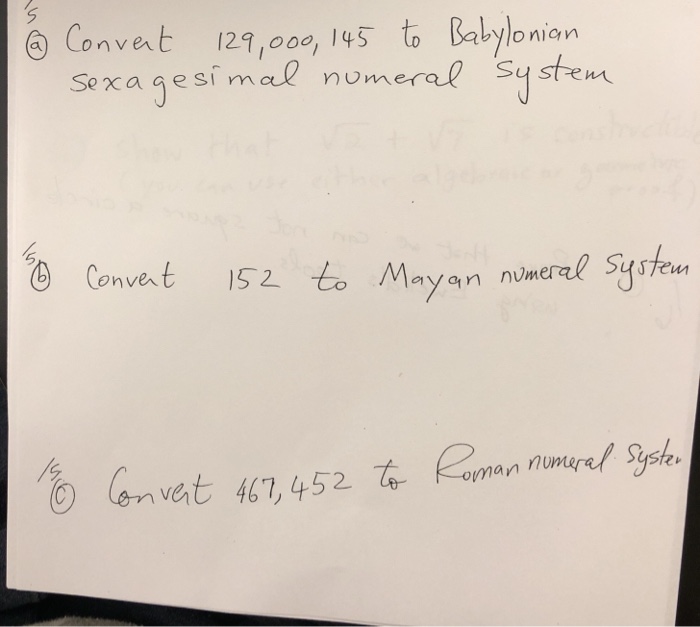 /5
(a) Convert 129,000,145 to Babylonian
sexagesimal numeral system
show that √2 + √7 is constructible
/5
(b) Convert 152 to Mayan numeral system
/5
(c) Convert 467,452 to Roman numeral syste